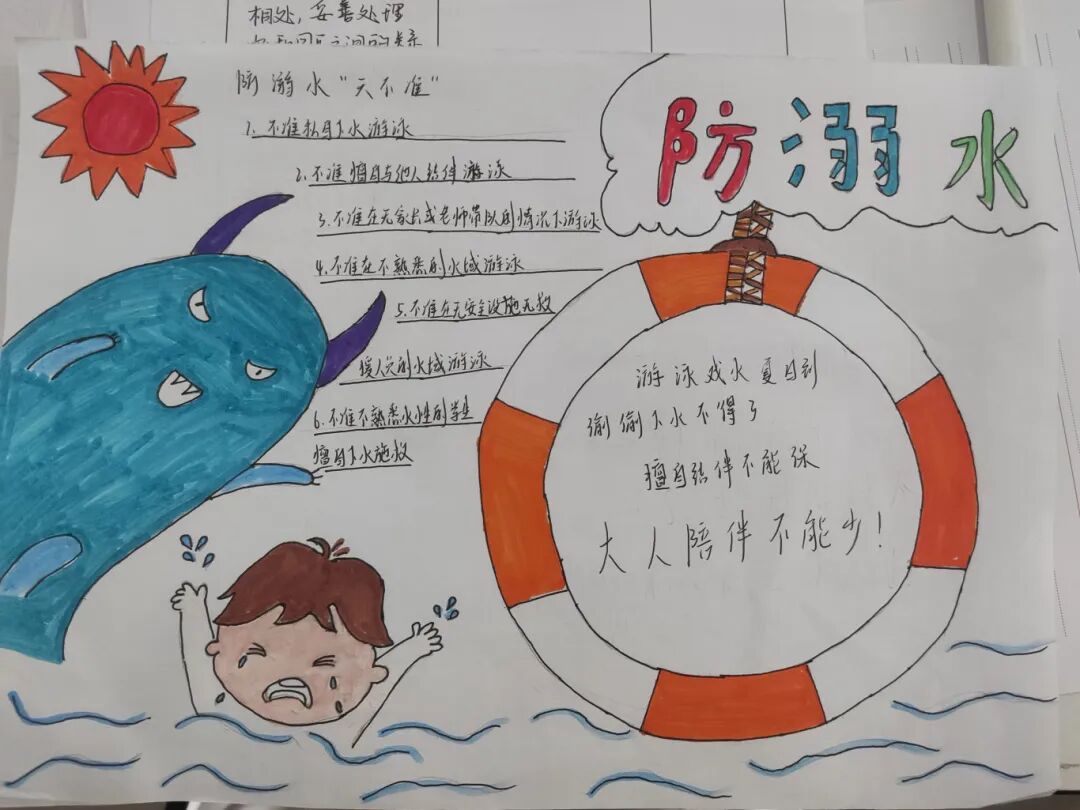 相处，妥善处理
防溺水
防溺水“六不准”
1.不准私自下水游泳
2.不准擅自与他人结伴游泳
3.不准在无家长或老师带队的情况下游泳
4.不准在不熟悉的水域游泳
5.不准在无安全设施无救
援人员的水域游泳
6.不准不熟悉水性的学生
擅自下水施救
游泳戏水夏日到
偷偷下水不得了
擅自结伴不能保
大人陪伴不能少!